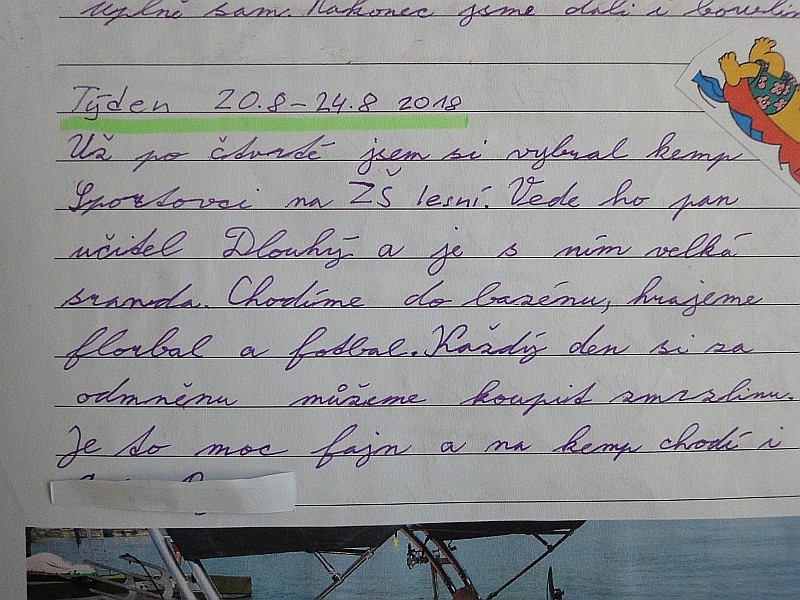 úplně sam. Nakonec jsme dali i bowlin
Týden 20.8-24.8 2018
Už po čtvrté jsem si vybral kemp
Sportovci na ZŠ lesní. Vede ho pan
učitel Dlouhý a je s ním velká
sranda. Chodíme do bazénu, hrajeme
florbal a fotbal. Každý den si za
odmněnu můžeme koupit zmrzlinu.
Je to moc fajn a na kemp chodí i